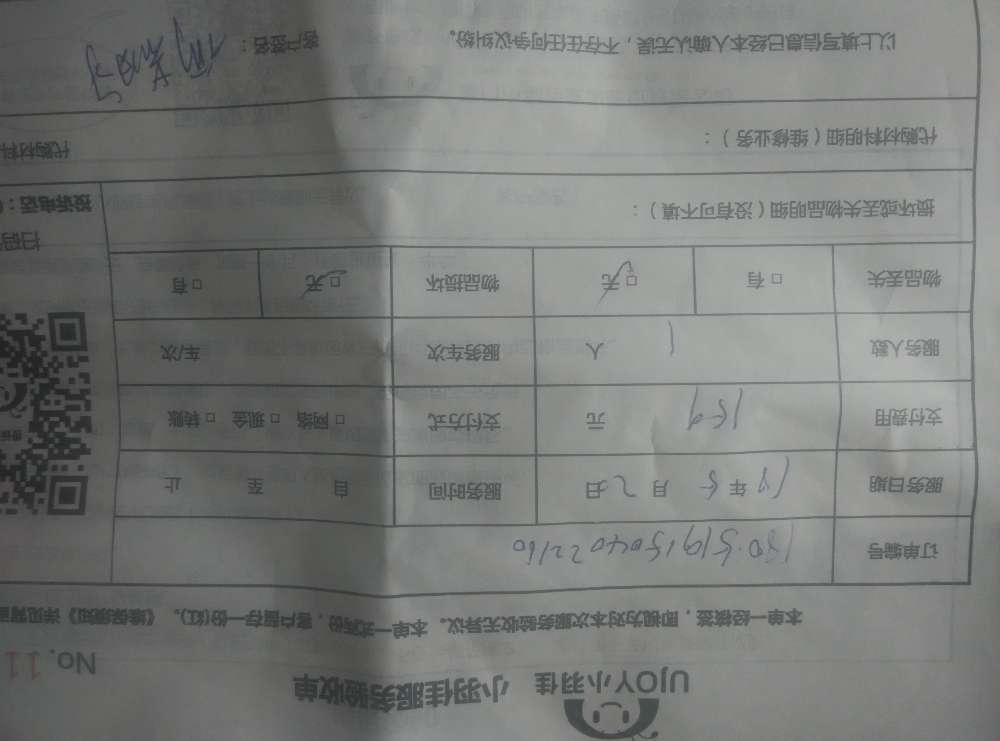 UJOY小羽佳 小羽佳服务验收单
No. 11
本单一经核签，即视为对本次服务验收无异议。本单一式两份，客户留存一份(红)。《维保须知》详见背面
订单编号
服务日期 18年5月2日 服务时间 自 至 止
支付费用 159 元 支付方式 □网络 □现金 □转账
服务人数 1 人 服务车次 车/次
物品丢失 □有 □无 物品损坏 □无 □有
扫码
损坏或丢失物品明细（没有可不填）：
投诉电话：
代购材料明细（维修业务）：
代购材料
以上填写信息已经本人确认无误，不存在任何争议纠纷。 客户签名：